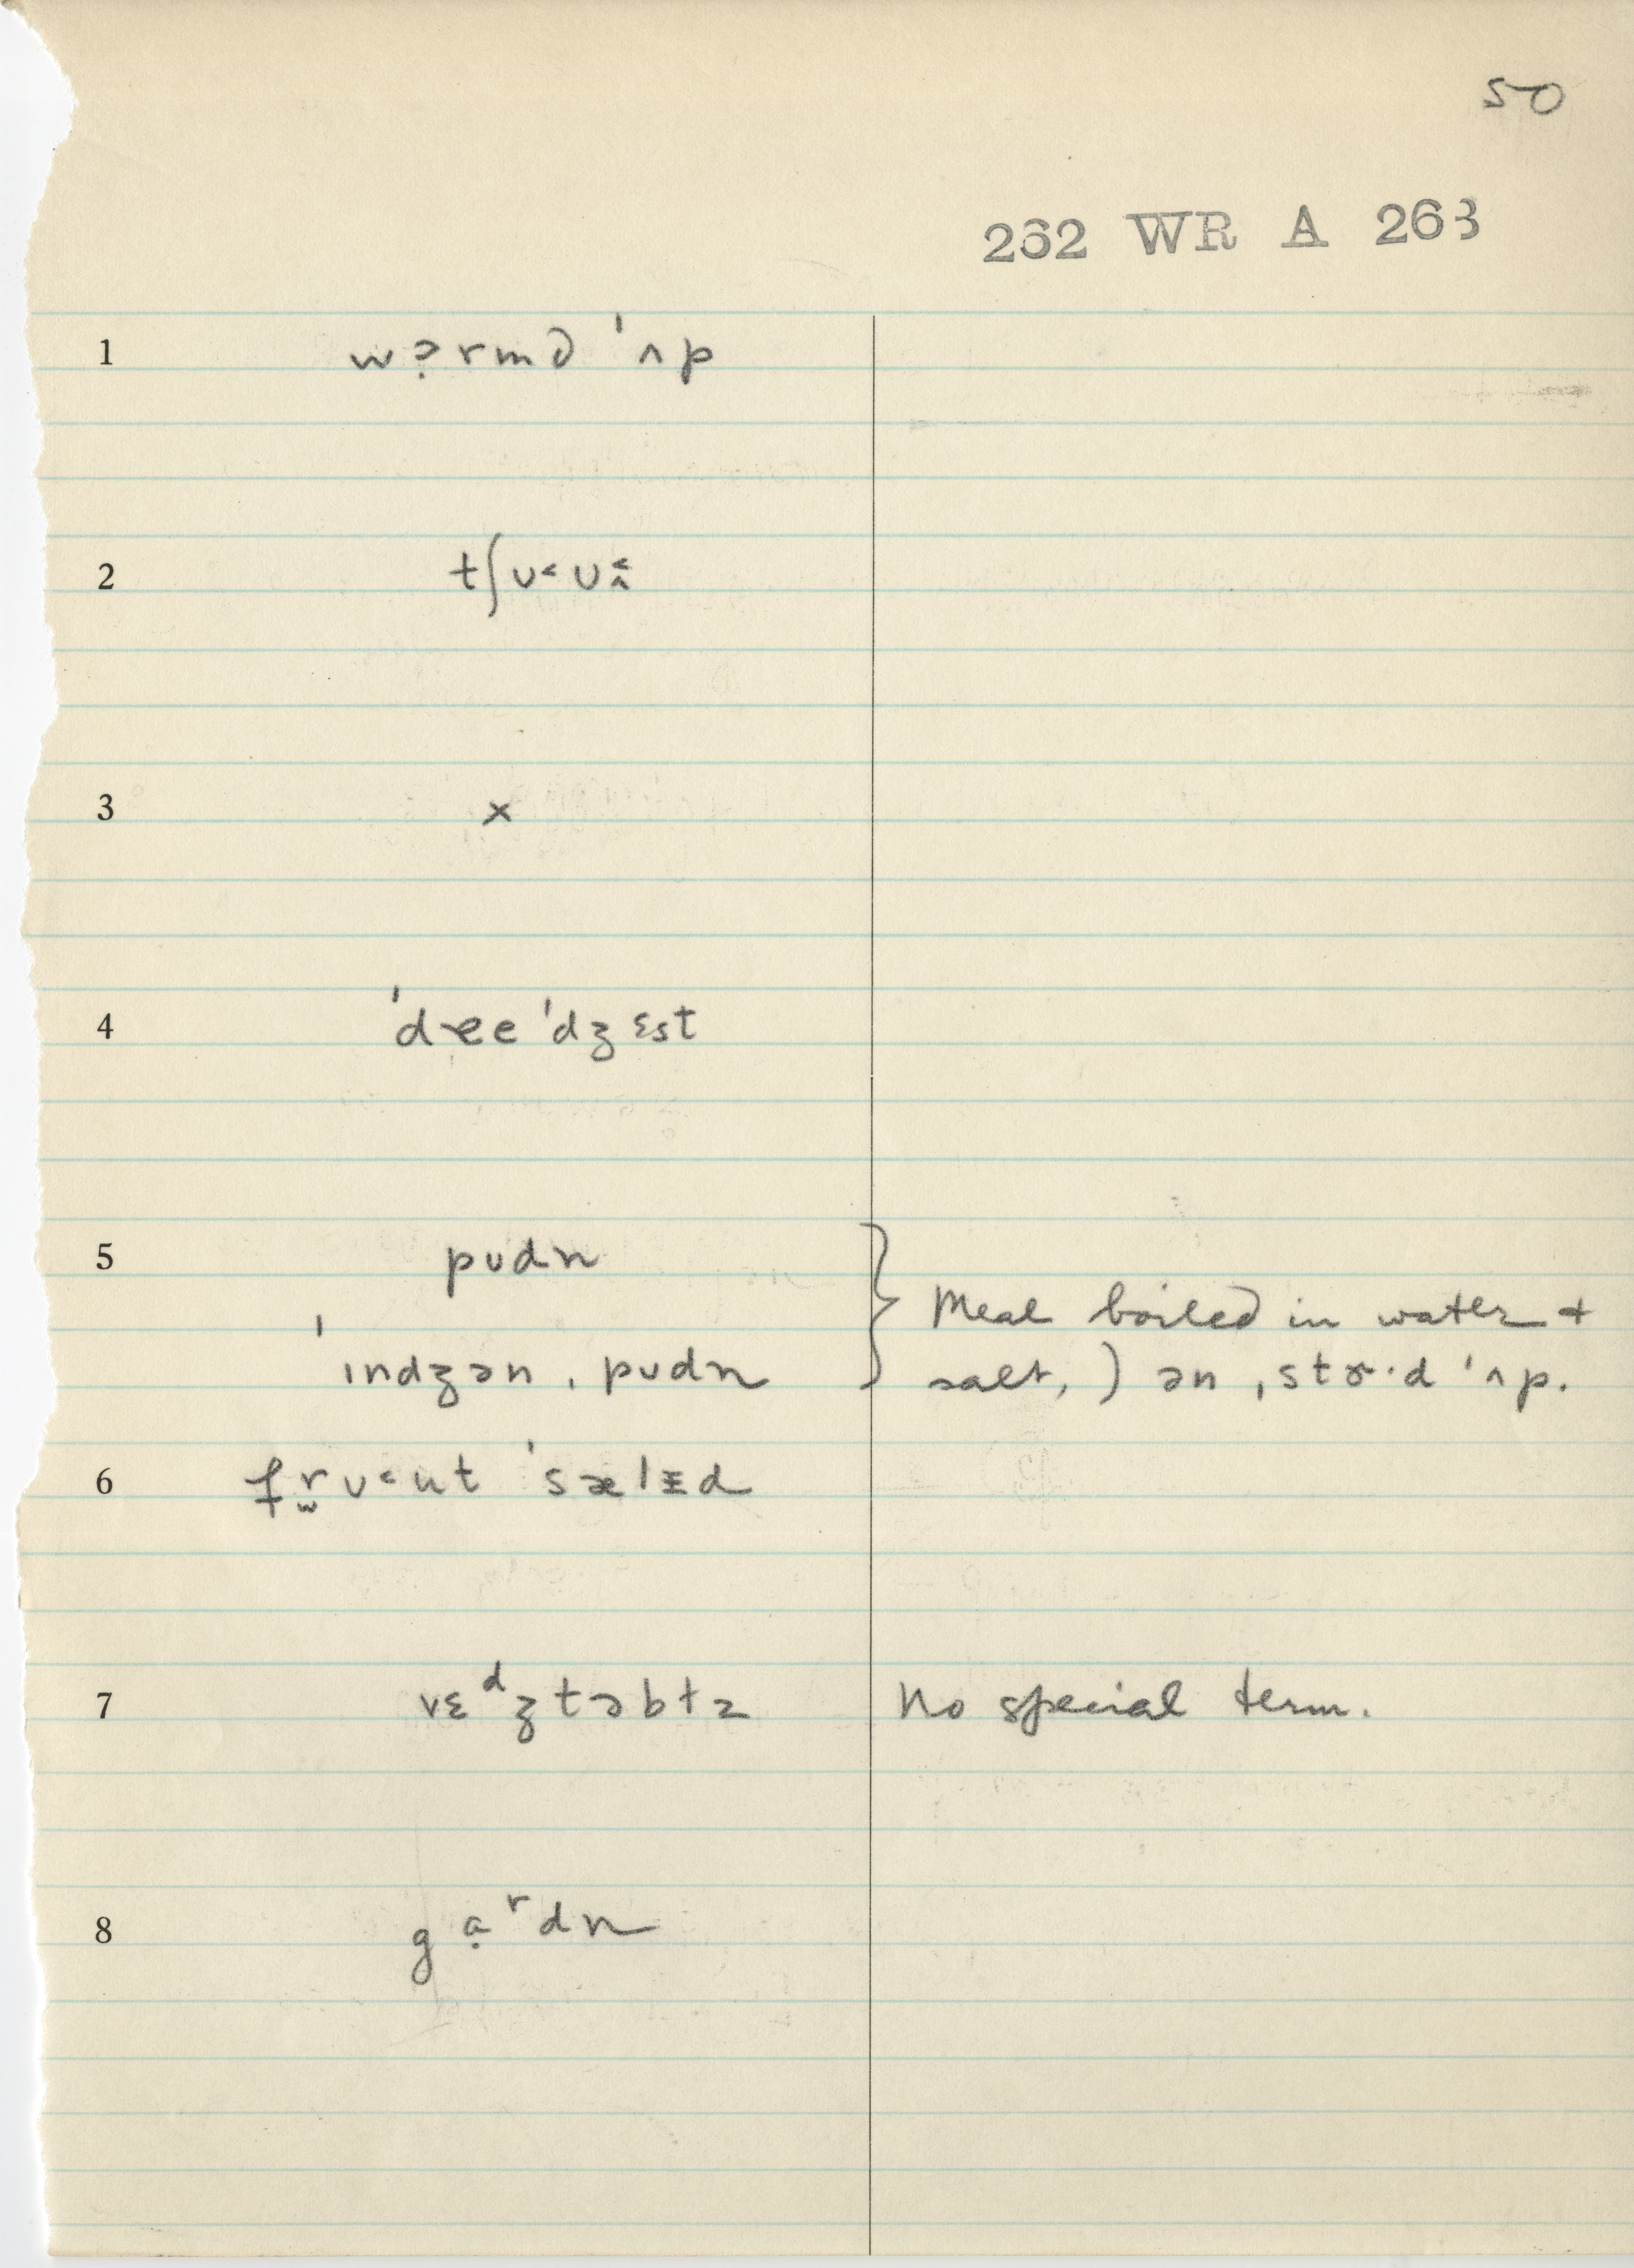 50
262 WR A 263
1 wɔ̣rmd ˈʌp
2 tʃʊ˂ʊ˂̭
3 ×
4 ˈdɪeeˈdʒɛst
5 pʊdn
ˈɪndʒən ˌpʊdn
Meal boiled in water +
salt, ) ən ˌstɝ·d ˈʌp.
6 frʊ˂ut ˈsælɪd
7 vɛᵈʒtəbɫz No special term.
8 gạʳdn